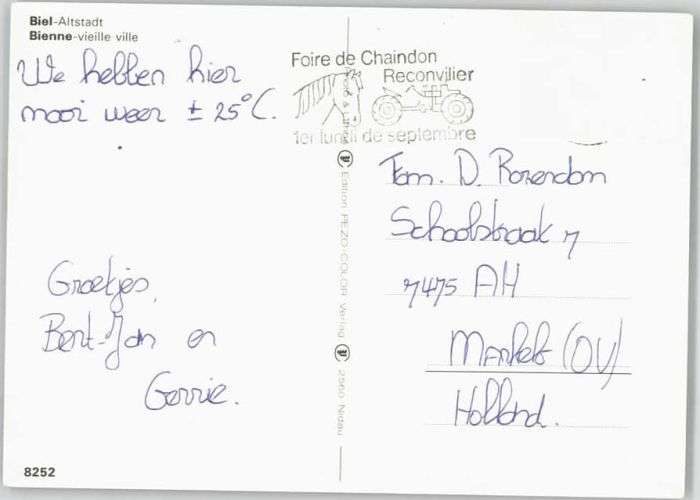 Biel-Altstadt
Bienne-vieille ville
We hebben hier
mooi weer ± 25°C.
Groetjes,
Bert-Jan en
Gerrie.
8252
Foire de Chaindon
Reconvilier
1er lundi de septembre
Edition PEZO-COLOR Verlag
2560 Nidau
Fam. D. Rozendom
Schoolstraat 7
7475 AH
Markelo (OV)
Holland.